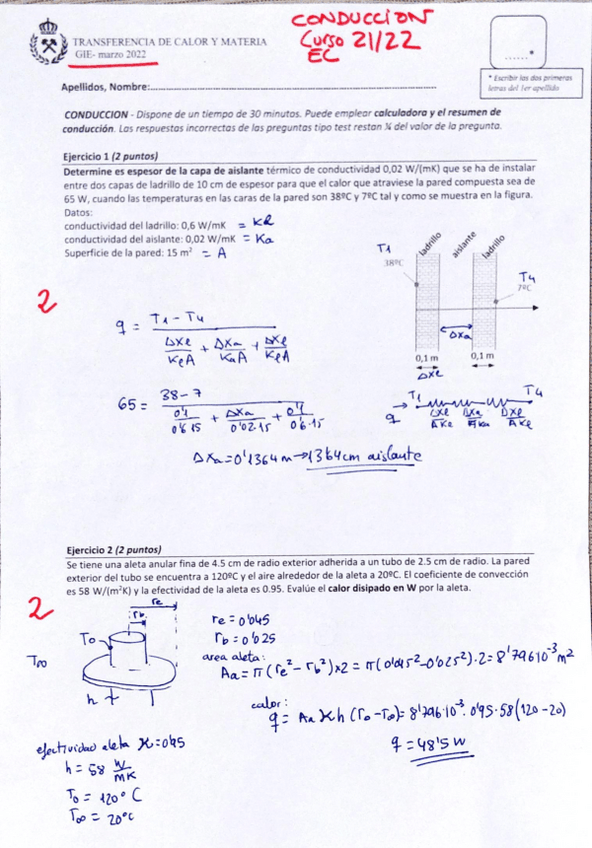 CONDUCCION
Curso 21/22
EC
TRANSFERENCIA DE CALOR Y MATERIA
GIE- marzo 2022
Apellidos, Nombre:
* Escribir las dos primeras
letras del 1er apellido
CONDUCCION - Dispone de un tiempo de 30 minutos. Puede emplear calculadora y el resumen de
conducción. Las respuestas incorrectas de las preguntas tipo test restan ¼ del valor de la pregunta.
Ejercicio 1 (2 puntos)
Determine es espesor de la capa de aislante térmico de conductividad 0,02 W/(mK) que se ha de instalar
entre dos capas de ladrillo de 10 cm de espesor para que el calor que atraviese la pared compuesta sea de
65 W, cuando las temperaturas en las caras de la pared son 38ºC y 7ºC tal y como se muestra en la figura.
Datos:
conductividad del ladrillo: 0,6 W/mK = Kl
conductividad del aislante: 0,02 W/mK = Ka
Superficie de la pared: 15 m² = A
ladrillo
aislante
ladrillo
T1
38ºC
T4
7ºC
ΔXa
0,1 m
0,1 m
ΔXl
2
q = (T1 - T4) / (ΔXl/KlA + ΔXa/KaA + ΔXl/KlA)
65 = (38-7) / (0'1/0'6·15 + ΔXa/0'02·15 + 0'1/0'6·15)
q T1 T4
ΔXl/AKl ΔXa/AKa ΔXl/AKl
ΔXa = 0'1364 m → 13'64 cm aislante
Ejercicio 2 (2 puntos)
Se tiene una aleta anular fina de 4.5 cm de radio exterior adherida a un tubo de 2.5 cm de radio. La pared
exterior del tubo se encuentra a 120ºC y el aire alrededor de la aleta a 20ºC. El coeficiente de convección
es 58 W/(m²K) y la efectividad de la aleta es 0.95. Evalúe el calor disipado en W por la aleta.
2
re
rb
To
T∞
h
re = 0'045
rb = 0'025
area aleta:
Aa = π(re² - rb²)×2 = π(0'045² - 0'025²)·2 = 8'796·10⁻³ m²
calor:
q = Aa χ h (To - T∞) = 8'796·10⁻³ · 0'95 · 58 (120 - 20)
q = 48'5 W
efectividad aleta χ = 0'95
h = 58 W/mK
To = 120° C
T∞ = 20°C